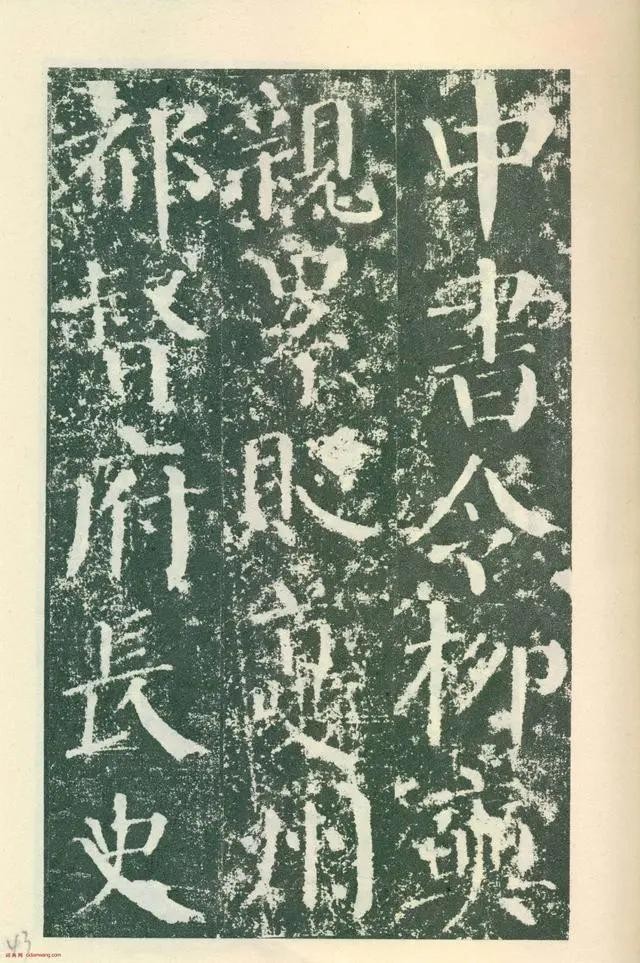 中書令柳奭
親累貶夔州
都督府長史
43